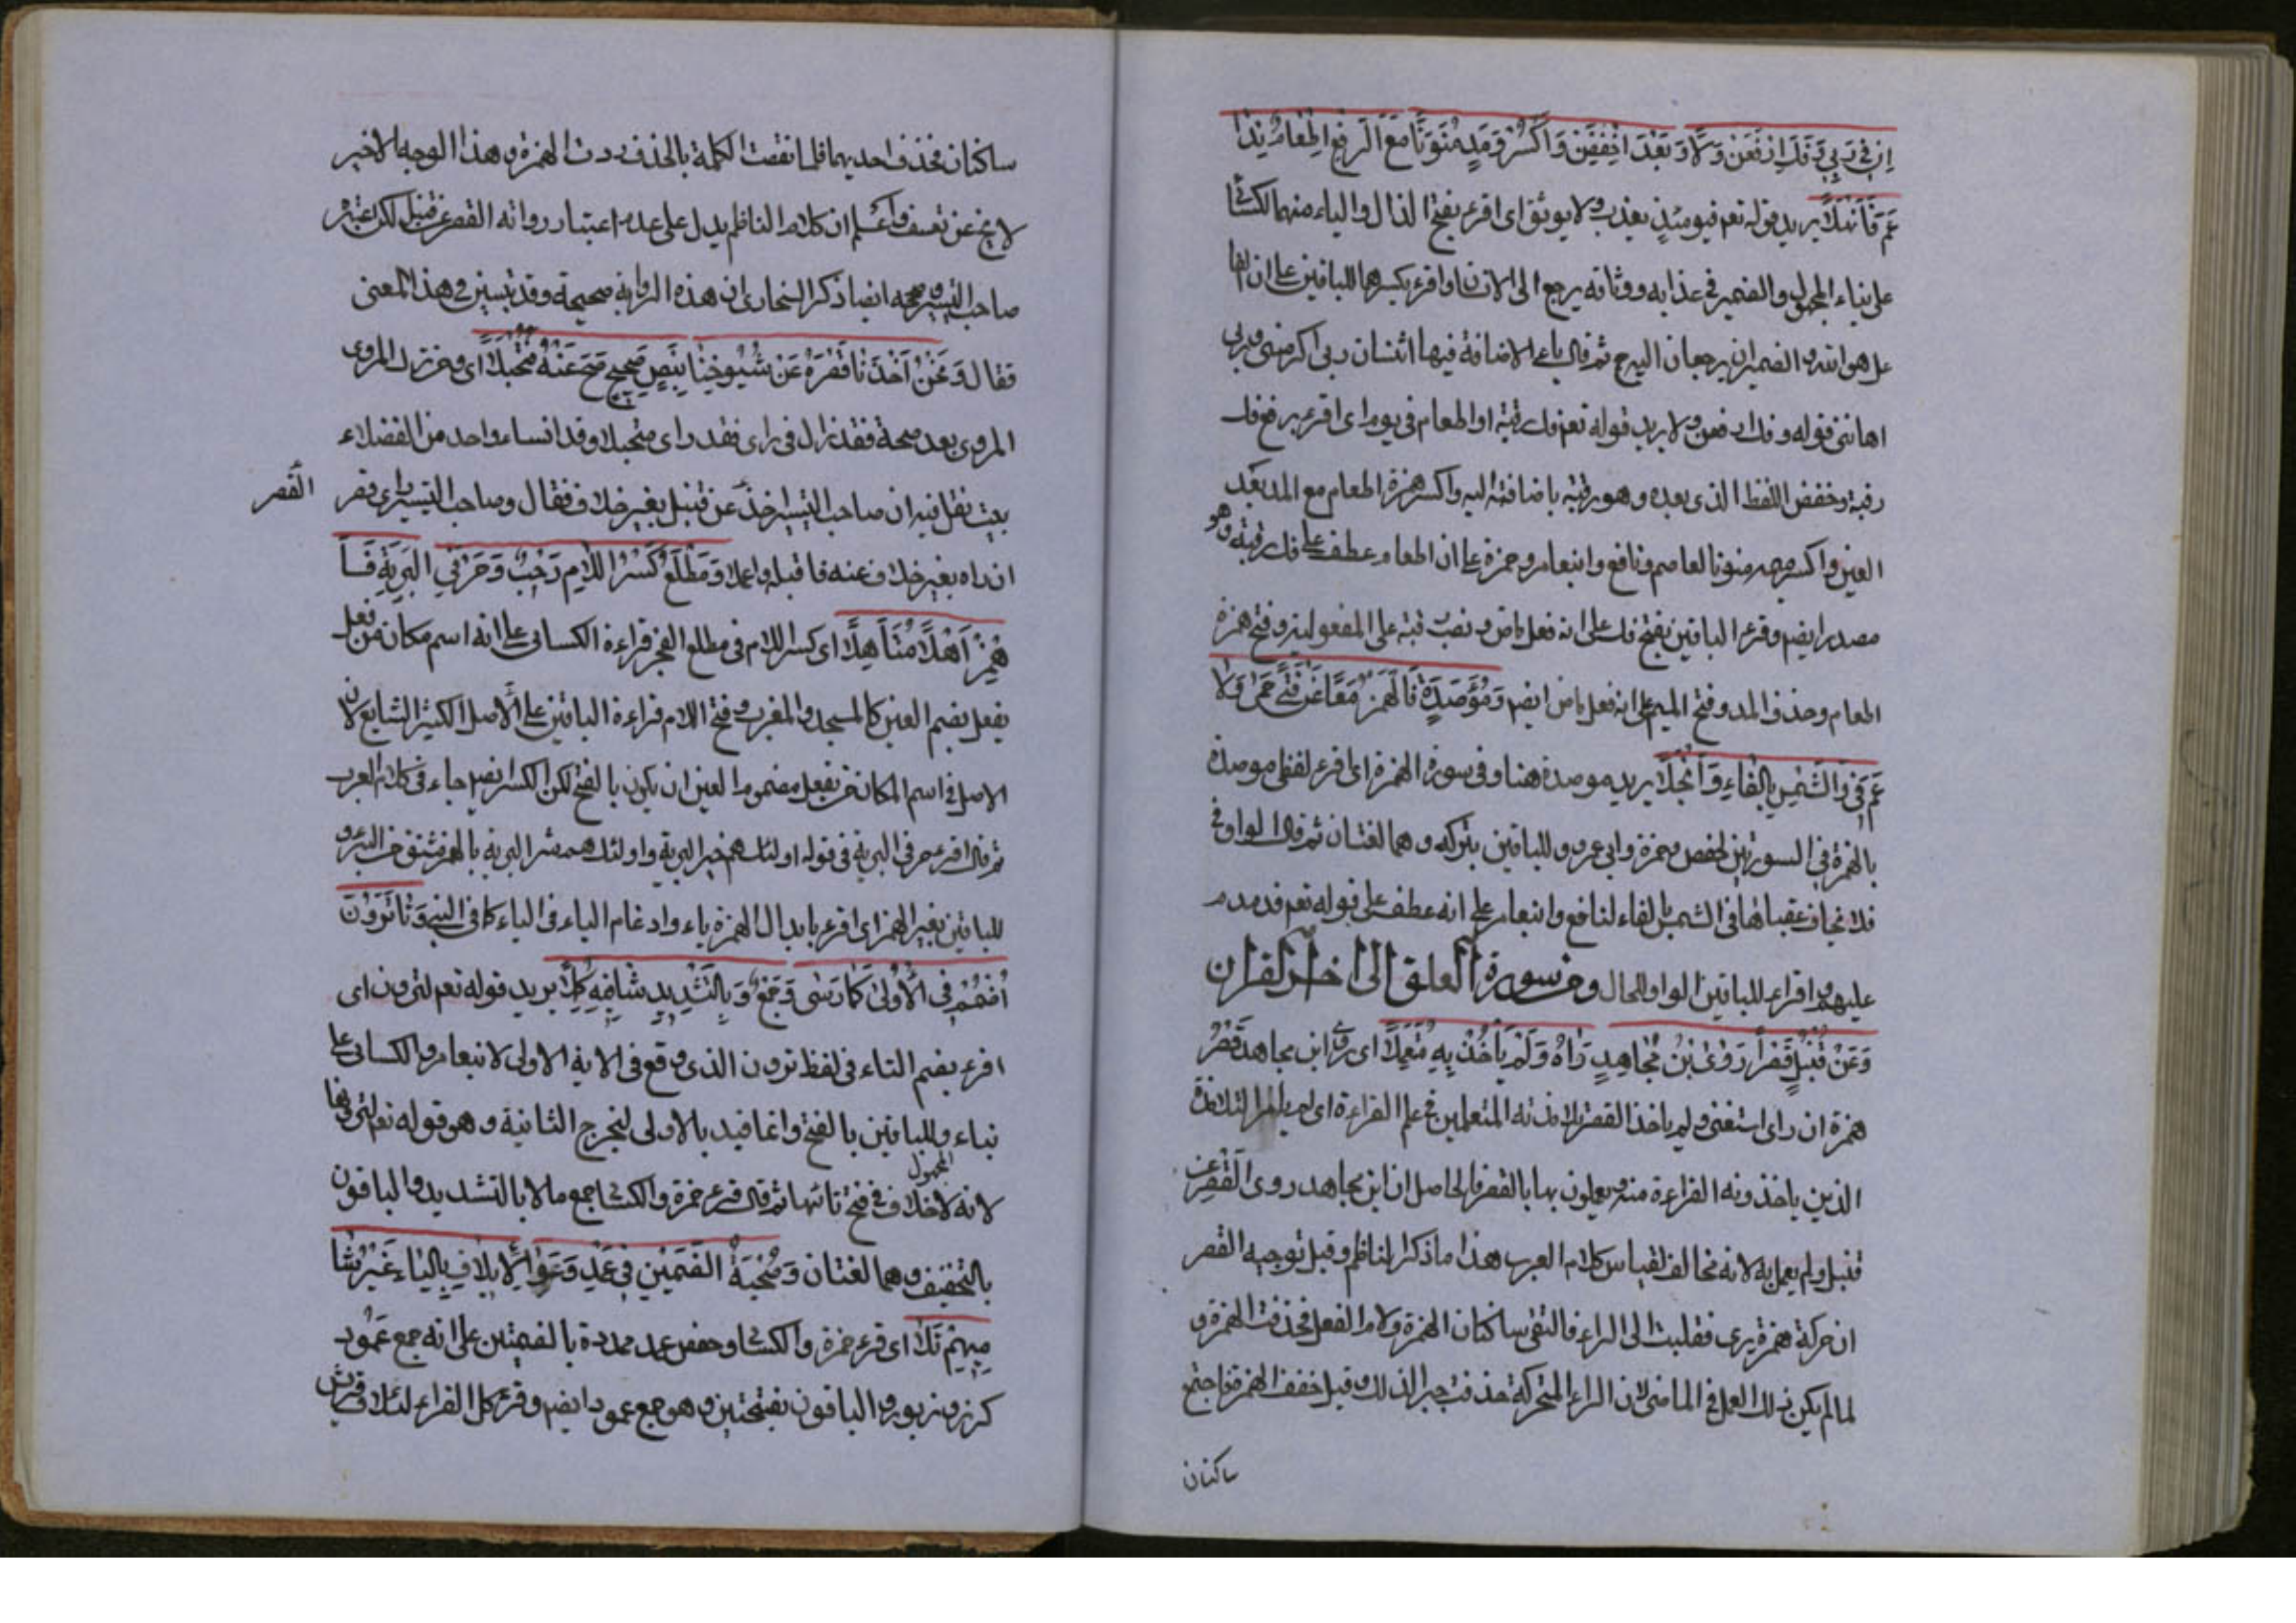 ان في ربي وَفَكَّ ارْفَعَنْ وَلَا وَبَعْدَ اخْفِضَنْ وَاكْسِرْ وَمَدَّ مُنَوِّنًا مَعَ الرَّفْعِ اطْعَامٌ نَدًا
عَمَّ فَانْهَلَا يريد قوله تعم فيومئذ يعذب ولا يوثق اى اقرء بفتح الذال والياء منهما للكسائى
على بناء المجهول والضمير في عذابه ووثاقه يرجع الى الانسان واقرء بكسرهما للباقين على ان
هو الله والضميران يرجعان اليه ثم قال ياء الاضافة فيها اثنتان ربى اكرمنى وربى
اهاننى قوله وفك ارفعن ولا يريد قوله تعم فك رقبة او اطعام في يوم اى اقرء برفع فك
رقبة وخفض اللفظ الذى بعده وهو رقبة باضافته اليه واكسر همزة اطعام مع المد بعد
العين واكسر ميمه منونا لعاصم ونافع وابنعامر وحمزة على ان اطعام عطف على فك رقبة وهو
مصدر ايضم وقرء الباقين بفتح فك على انه فعل ماض ونصب رقبة على المفعولية وفتح همزة
اطعام وحذف المد وفتح الميم على انه فعل ماض ايضم وَمُؤْصَدَةٌ فَاهْمِزْ مَعًا عَنْ فَتًى حِمًى وَلَا
عَمَّ فِي وَالشَّمْسِ بِالْفَاءِ وَانْجَلَا يريد موصدة هنا وفي سورة الهمزة اى اقرء لفظى موصدة
بالهمزة في السورتين لحفص وحمزة وابى عمرو وللباقين بتركه وهما لغتان ثم قال الواو في
فلا تخاف عقباها في الشمس بالفاء لنافع وابنعامر على انه عطف على قوله تعم فدمدم
عليهم واقراء للباقين الواو للحال ومن سورة العلق الى اخر القران
وَعَنْ قُنْبُلٍ قَصْرًا رَوَى ابْنُ مُجَاهِدٍ رَآهُ وَلَمْ يَأْخُذْ بِهِ مُتَعَمِّلَا اى روى ابن مجاهد قصر
همزة ان راى استغنى ولم ياخذ القصر تلامذته المتعلمين في علم القراءة اى لم يامر التلامذة
الذين ياخذونه القراءة منه ويعلون بها بالقصر فالحاصل ان ابن مجاهد روى القصر عن
قنبل ولم يعمل به لانه مخالف لقياس كلام العرب هذا ما ذكر الناظم وقيل توجيه القصر
ان حركة همزة يرى فقلبت الى الراء فالتقى ساكنان الهمزة ولام الفعل فحذفت الهمزة و
لما لم يكن ذلك العمل في الماضى لان الراء المتحركة حذفت جبرا لذلك وقيل خفف الهمزة فاجتمع
ساكنان
ساكنان فحذف احديهما فلما نقصت الكلمة بالحذف ردت الهمزة وهذا الوجه الاخير
لا يخ عن تعسف واعلم ان كلام الناظم يدل على عدم اعتبار رواته القصر عن قنبل لكن اعتبره
صاحب التيسير وصححه ايضا ذكر السخاوى ان هذه الرواية صحيحة وقد بيتين في هذا المعنى
فقال وَنَحْنُ أَخَذْنَا قَصْرَهُ عَنْ شُيُوخِنَا بِنَصٍّ صَحِيحٍ صَحَّ عَنْهُ مُبَجَّلَا اى ومن ترك المروى
المروى بعد صحة فقد زل في راى فقد راى متخيلا وقد انساء واحد من الفضلاء
بيت نقل فيه ان صاحب التيسير اخذ عن قنبل بغير خلاف فقال وصاحب التيسير راى قصر القصر
ان راه بغير خلاف عنه فاقبله واعملا وَمَطْلَعِ كَسْرُ اللَّامِ رَحْبٌ وَحَرْفَيِ الْبَرِيَّةِ فَا
هْمِزْ آهِلًا مُتَأَهِّلَا اى كسر اللام في مطلع الفجر قراءة الكسائى على انه اسم مكان من فعل
يفعل بضم العين كالمسجد والمغرب وفتح اللام قراءة الباقين على الاصل الكثير الشايع لان
الاصل في اسم المكان من يفعل مضموم العين ان يكون بالفتح لكن الكسر ايضم جاء في كلام العرب
ثم قال اقرء حرفي البرية في قوله اولئك هم خير البرية واولئك هم شر البرية بالهمز
للباقين بغير الهمز اى اقرء بابدال الهمزة ياء وادغام الياء في الياء كما في النبى وَتَا تَرَوُنَّ
اضْمُمْ فِي الْأُولَى كَمَا رَسَى وَجَمَّعَ بِالتَّشْدِيدِ شَافِيهِ كَمَّلَا يريد قوله تعم لترون اى
اقرء بضم التاء في لفظ ترون الذى وقع في الاية الاولى لابنعامر والكسائى على
بناء المجهول وللباقين بالفتح وانما قيد بالاولى ليخرج الثانية وهو قوله تعم لترونها
لانه لا خلاف في فتح تائها ثم قال قرء حمزة والكسائى جمع مالا بالتشديد والباقون
بالتخفيف وهما لغتان وَصُحْبَةٌ الضَّمَّيْنِ فِي عَمَدٍ وَعَوْا لِإِيلَافِ بِالْيَاءِ غَيْرُ شَا
مِيِّهِمْ تَلَا اى قرء حمزة والكسائى وحفص عمد ممددة بالضمتين على انه جمع عمود
كزبر وزبور والباقون بفتحتين وهو جمع عمود ايضم وقرء كل القراء لئلاف قريش